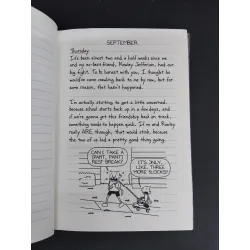 SEPTEMBER
Thursday
It's been almost two and a half weeks since me
and my ex-best friend, Rowley Jefferson, had our
big fight. To be honest with you, I thought he
would've come crawling back to me by now, but
for some reason, that hasn't happened.
I'm actually starting to get a little concerned,
because school starts back up in a few days, and
if we're gonna get this friendship back on track,
something needs to happen quick. If me and Rowley
really ARE through, that would stink, because
the two of us had a pretty good thing going.
CAN I TAKE A
(PANT, PANT)
REST BREAK?
IT'S ONLY,
LIKE, THREE
MORE BLOCKS!